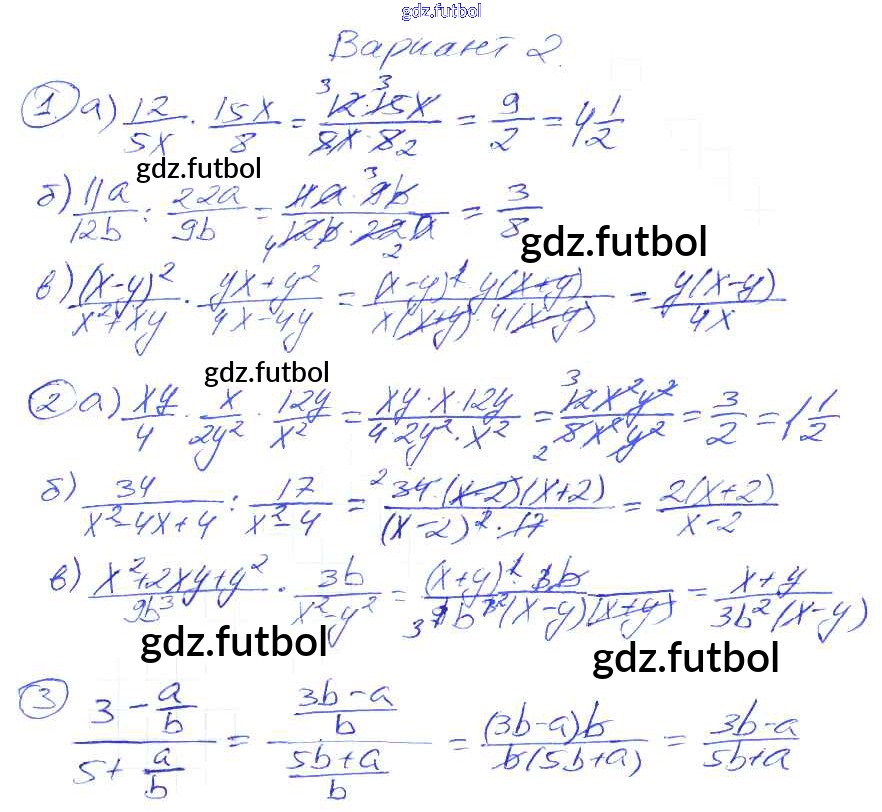 gdz.futbol
Вариант 2.
① а) 12/5x · 15x/8 = 12·15x/8x·8 = 9/2 = 4 1/2
gdz.futbol
б) 11a/12b : 22a/9b = 11a·9b/12b·22a = 3/8
gdz.futbol
в) (x-y)²/x²+xy · yx+y²/4x-4y = (x-y)² y(x+y)/x(x+y)·4(x-y) = y(x-y)/4x
gdz.futbol
② а) xy/4 · x/2y² · 12y/x² = xy·x·12y/4 2y²·x² = 12x²y²/8x²y² = 3/2 = 1 1/2
б) 34/x²-4x+4 : 17/x²-4 = 34·(x-2)(x+2)/(x-2)²·17 = 2(x+2)/x-2
в) x²+2xy+y²/9b³ · 3b/x²-y² = (x+y)²·3b/9b³(x-y)(x+y) = x+y/3b²(x-y)
gdz.futbol gdz.futbol
③ 3 - a/b / 5 + a/b = 3b-a/b / 5b+a/b = (3b-a)b/b(5b+a) = 3b-a/5b+a